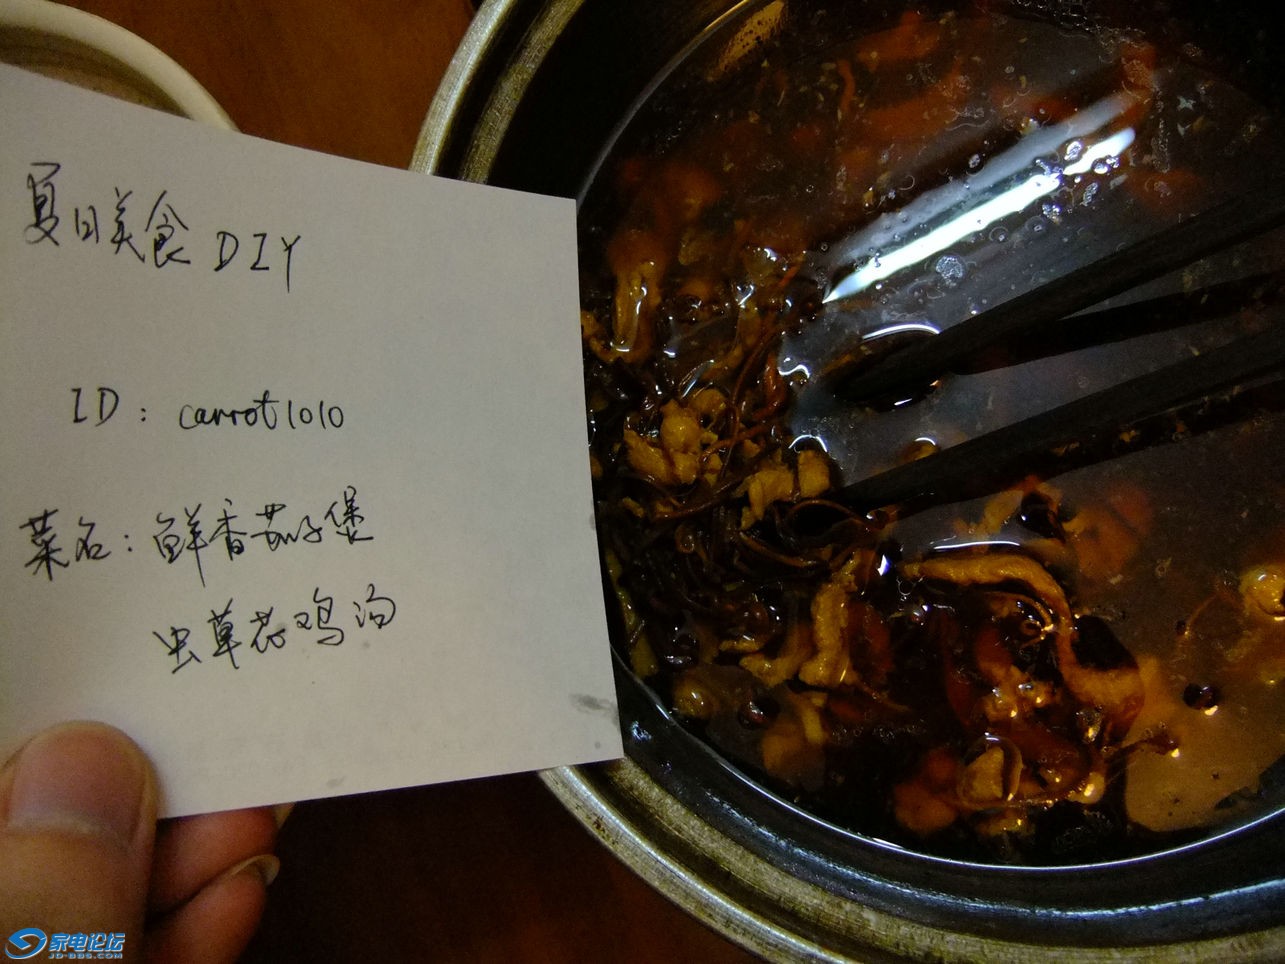 夏日美食 DIY
ID: carrot1010
菜名: 鲜香茄子煲
虫草花鸡汤
家电论坛
JD-BBS.COM